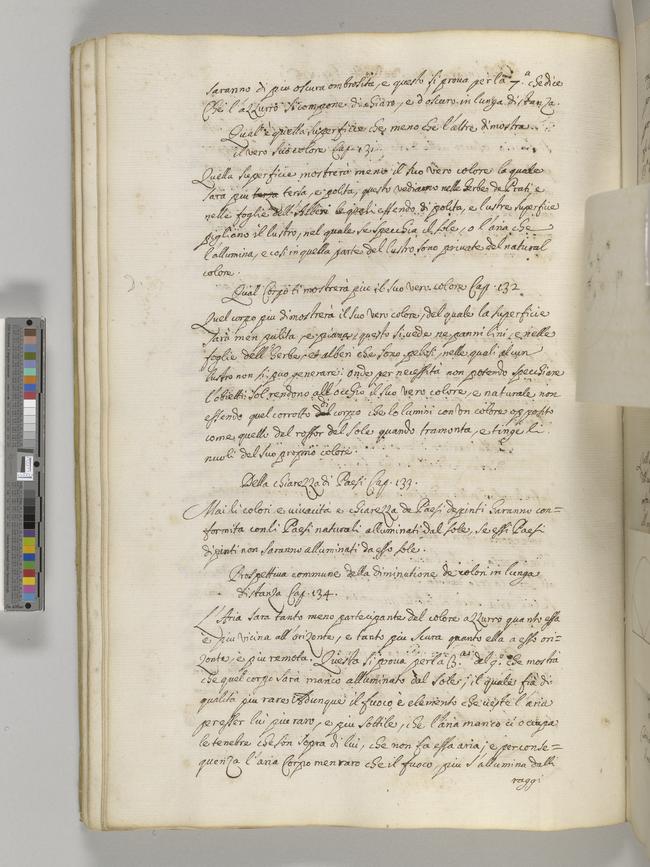 saranno di piu oscura ombrosità, e questo si prova per la 7.a che dice
Che l'azzurro si compone di chiaro, e d'oscuro in lunga distanza.
Qual'è quella superficie che meno che l'altre dimostra
il vero suo colore Cap. 131.
Quella superficie mostrerà meno il suo vero colore la quale
sarà piu tersa, e polita, questo vediamo nelle herbe de Prati, e
nelle foglie dell'Alberi le quali essendo di polita, e lustre superficie
pigliano il lustro, nel quale se specchia il sole, o l'aria che
l'allumina, e così in quella parte del lustro sono private del natural
colore.
Qual Corpo ti mostrerà piu il suo vero colore Cap. 132.
Quel corpo piu dimostrerà il suo vero colore, del quale la superficie
sarà men pulita, e piana; questo si vede ne panni lini, e nelle
foglie dell'Herbe, et alberi che sono pelosi, nelle quali alcun
lustro non si puo generare; onde per necessità non potendo specchiare
l'obietti sol rendono all'occhio il suo vero colore, e naturale non
essendo quel corrotto dal corpo che lo lumini con un colore opposito
come quello del rossor del sole quando tramonta, e tinge li
nuoli del suo proprio colore.
Della chiarezza di Paesi Cap. 133.
Mai li colori e vivacità e chiarezza de Paesi depinti haranno con=
formità con li Paesi naturali alluminati dal sole, se essi Paesi
dipinti non saranno alluminati da esso sole.
Prospettiva commune della diminutione de colori in lunga
distanza Cap. 134.
L'Aria sarà tanto meno partecipante del colore azzurro quanto essa
è piu vicina all'orizonte, e tanto piu scura quanto ella a esso ori=
zonte, e piu remota. Questa si prova per la 3.a del 9.o che mostra
che quel corpo sarà manco alluminato dal sole, il quale fia di
qualità piu rare. Adunque il fuoco è elemento che veste l'aria
per esser lui piu raro, e piu sottile, che l'aria manco ci occupa
le tenebre che son sopra di lui, che non fa essa aria; e per conse=
quenza l'aria Corpo men raro che il fuoco, piu s'allumina dalli
raggi